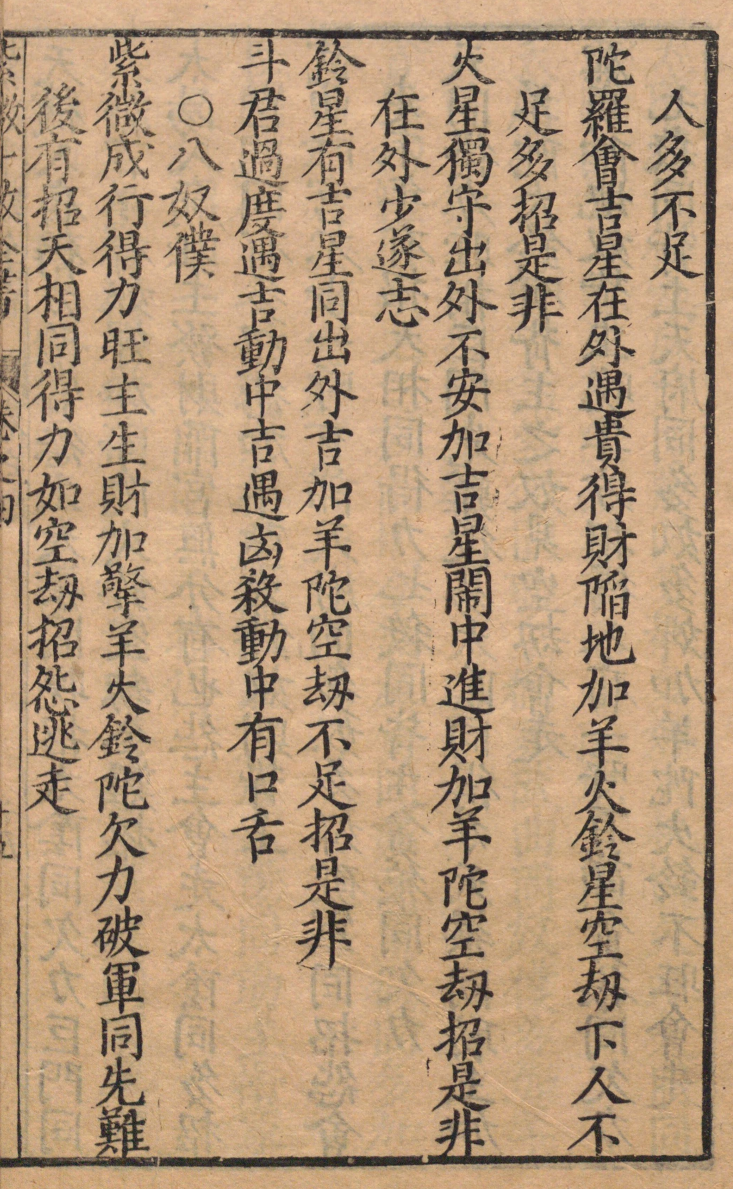 人多不足
陀羅會吉星在外遇貴得財陷地加羊火鈴星空劫下人不
足多招是非
火星獨守出外不安加吉星鬧中進財加羊陀空劫招是非
在外少遂志
鈴星有吉星同出外吉加羊陀空劫不足招是非
斗君過度遇吉動中吉遇凶殺動中有口舌
○八奴僕
紫微成行得力旺主生財加擎羊火鈴陀欠力破軍同先難
後有招天相同得力如空劫招怨逃走